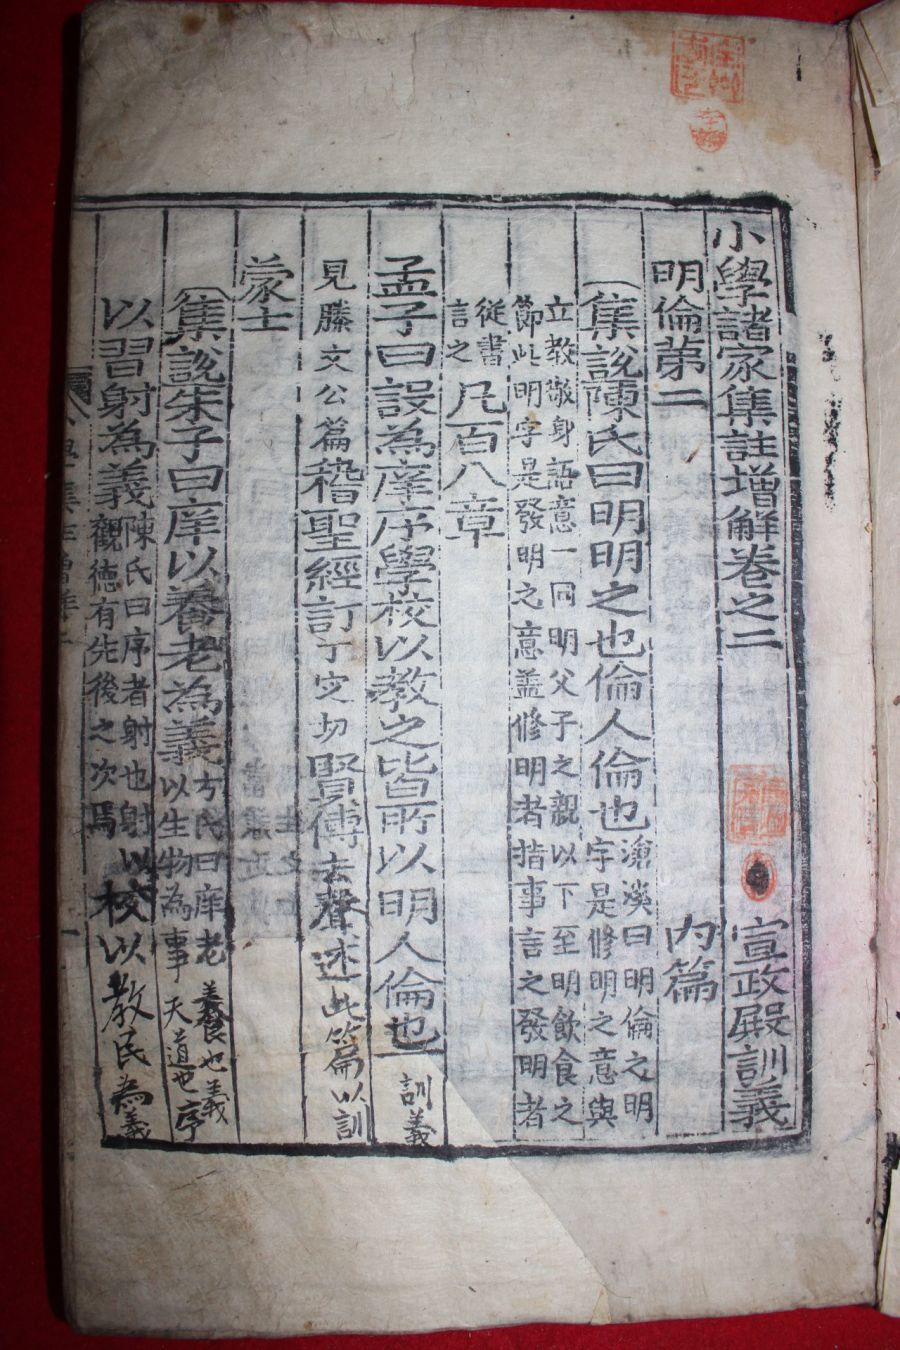 小學諸家集註增解卷之二
宣政殿訓義
明倫第二
內篇
集說陳氏曰明明之也倫人倫也
滄溪曰明倫之明
字是修明之意與
立教敬身語意一同明父子之親以下至明飮食之
節此明字是發明之意盖修明者指事言之發明者
從書
言之
凡百八章
孟子曰設為庠序學校以教之皆所以明人倫也
訓義
見滕文公篇
稽聖經訂
丁定切
賢傳
去聲
述此篇以訓
蒙士
集說朱子曰庠以養老為義
方氏曰庠老
養也義
以生物為事
天道也
序
以習射為義
陳氏曰序者射也射以
觀德有先後之次焉
校以教民為義